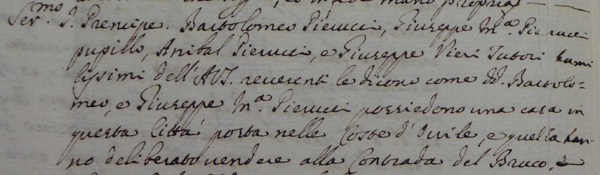 Ser.mo P. Prencipe. Bartolomeo Pierucci, Giuseppe M.a Pierucci
pupillo, Anibal Pierucci, e Giuseppe Pieri Tutori humi
lissimi dell'AVS. reverenti le dicono come dd. Bartolo=
meo, e Giuseppe M.a Pierucci possiedono una casa in
questa Città posta nelle Coste d'Ovile, e quella han=
no deliberato vendere alla Contrada del Bruco,